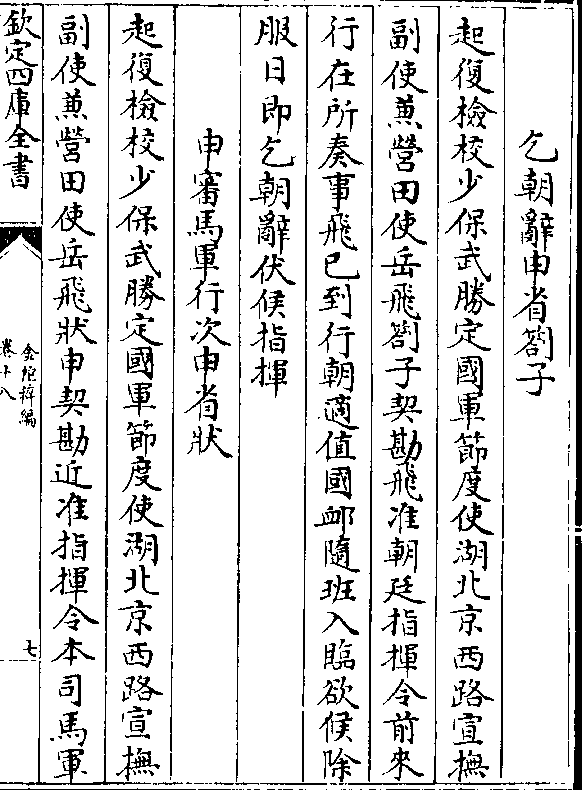 乞朝辭申省劄子
起復檢校少保武勝定國軍節度使湖北京西路宣撫
副使兼營田使岳飛劄子契勘飛准朝廷指揮令前來
行在所奏事飛已到行朝適值國衈隨班入臨欲候除
服日即乞朝辭伏候指揮
申審馬軍行次申省狀
起復檢校少保武勝定國軍節度使湖北京西路宣撫
副使兼營田使岳飛狀申契勘近准指揮令本司馬軍
欽定四庫全書
金陀稡編
卷十八
七